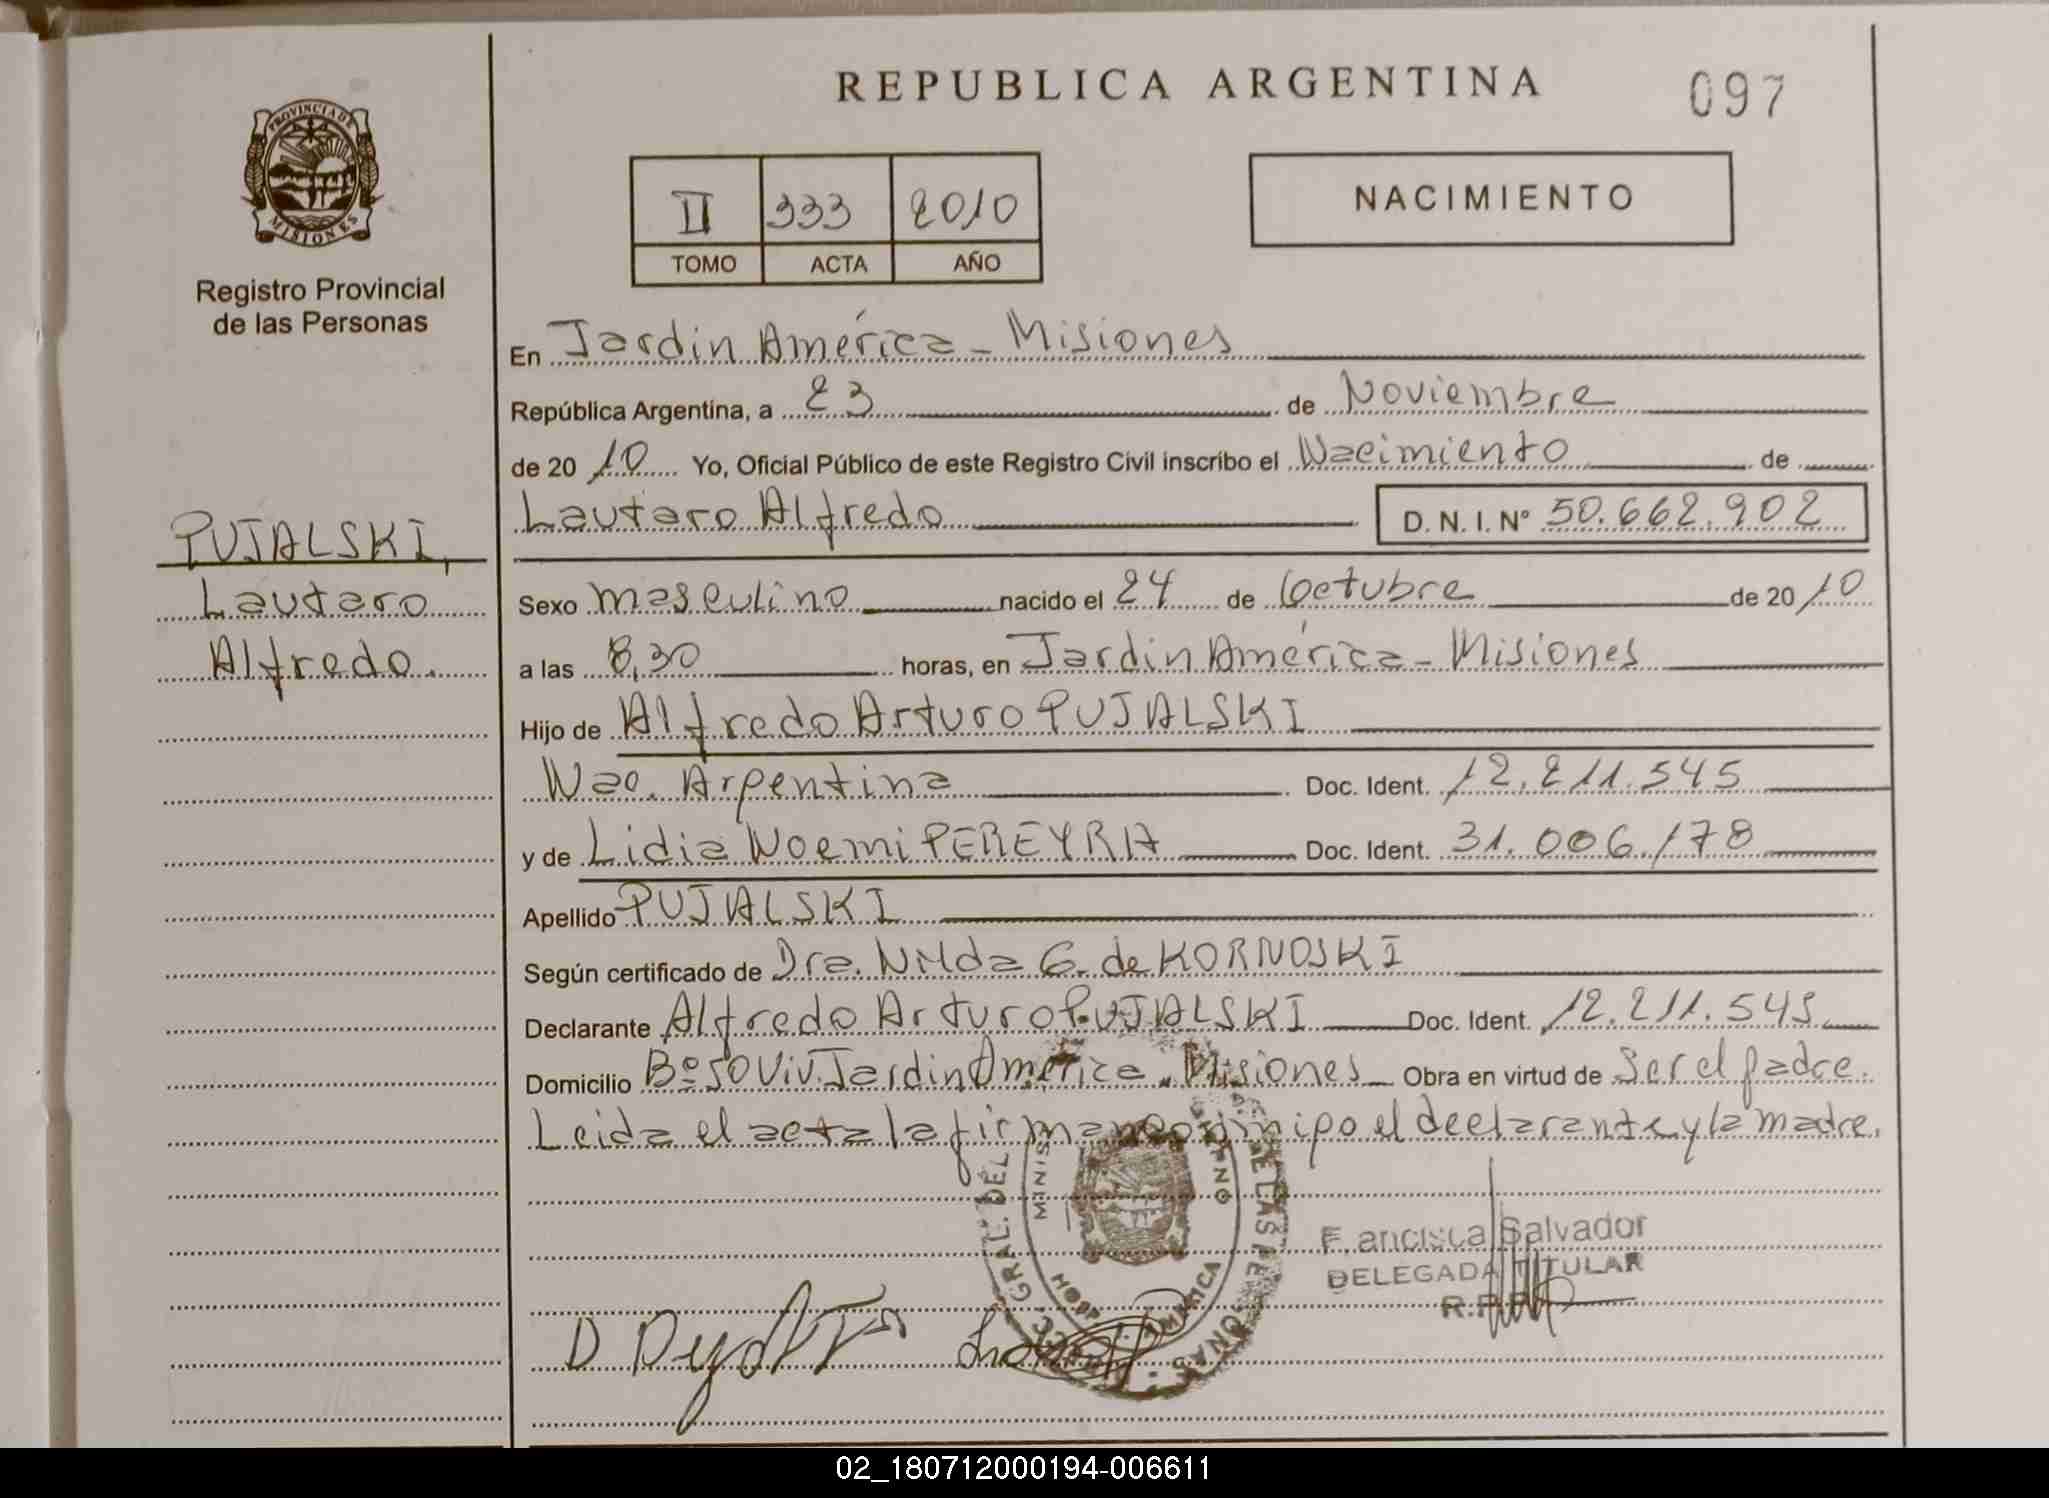 REPUBLICA ARGENTINA
097
PROVINCIA DE
MISIONES
Registro Provincial
de las Personas
II 333 2010
TOMO ACTA AÑO
NACIMIENTO
En Jardin América - Misiones
República Argentina, a 23 de Noviembre
de 20 10 Yo, Oficial Público de este Registro Civil inscribo el Nacimiento de
Lautaro Alfredo D. N. I. Nº 50.662.902
PUJALSKI,
Lautaro
Alfredo.
Sexo masculino nacido el 24 de Octubre de 20 10
a las 8,30 horas, en Jardin América - Misiones
Hijo de Alfredo Arturo PUJALSKI
Nac. Argentina Doc. Ident. 12.211.545
y de Lidia Noemi PEREYRA Doc. Ident. 31.006.178
Apellido PUJALSKI
Según certificado de Dra. Nilda G. de KORNOSKI
Declarante Alfredo Arturo PUJALSKI Doc. Ident. 12.211.545
Domicilio Bº 50 Viv. Jardin América - Misiones Obra en virtud de Ser el padre.
Leida el acta la firman conmigo el declarante y la madre.
GRAL. DEL
DE LAS
HOSP. AMERICA
Francisca Salvador
DELEGADA TITULAR
R.P.P.
02_180712000194-006611